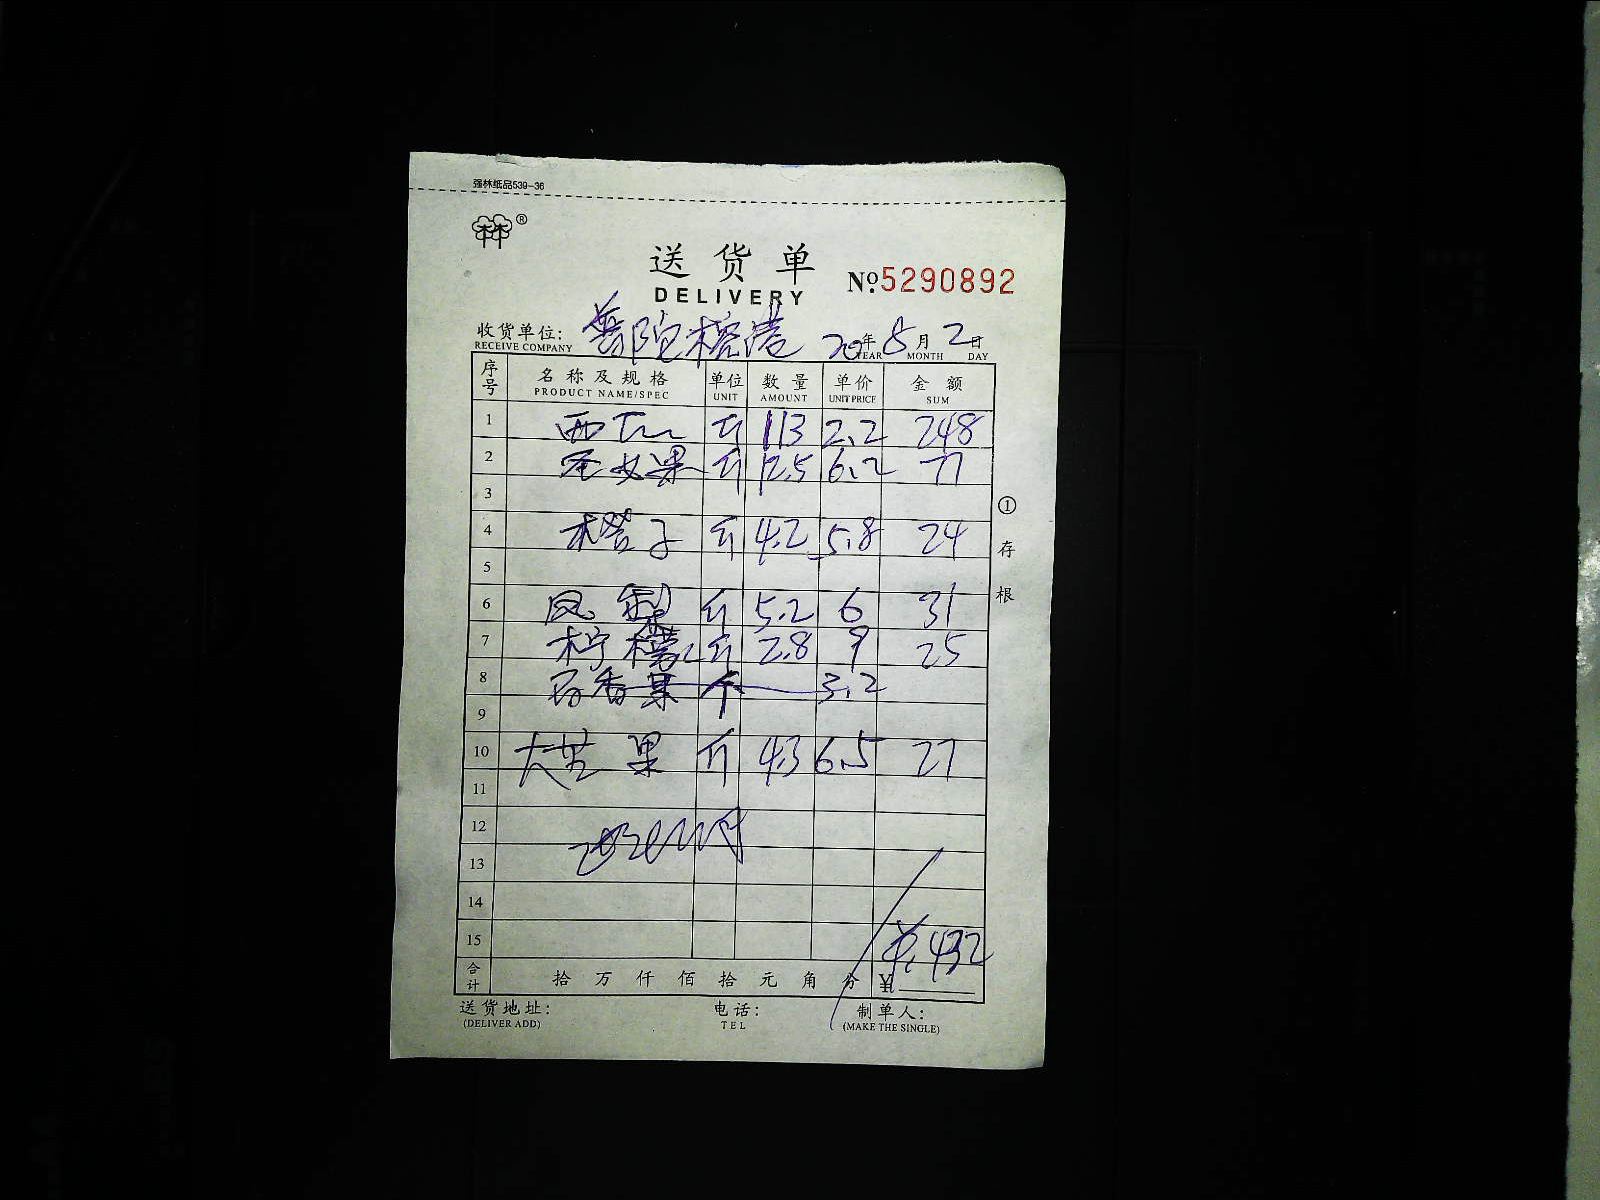 强林纸品539-36
林®
送货单
DELIVERY
№5290892
收货单位: 20年8月2日
RECEIVE COMPANY YEAR MONTH DAY
序号 名称及规格 单位 数量 单价 金额
PRODUCT NAME/SPEC UNIT AMOUNT UNIT PRICE SUM
1 西瓜 斤 113 2.2 248
2 圣女果 斤 12.5 6.2 77
3
4 橙子 斤 4.2 5.8 24
5
6 凤梨 斤 5.2 6 31
7 柠檬 斤 2.8 9 25
8 百香果 个 3.2
9
10 大芒果 斤 4.3 6.5 27
11
12
13
14
15 ¥.432
合计 拾 万 仟 佰 拾 元 角 分 ¥
①存根
送货地址: 电话: 制单人:
(DELIVER ADD) TEL (MAKE THE SINGLE)